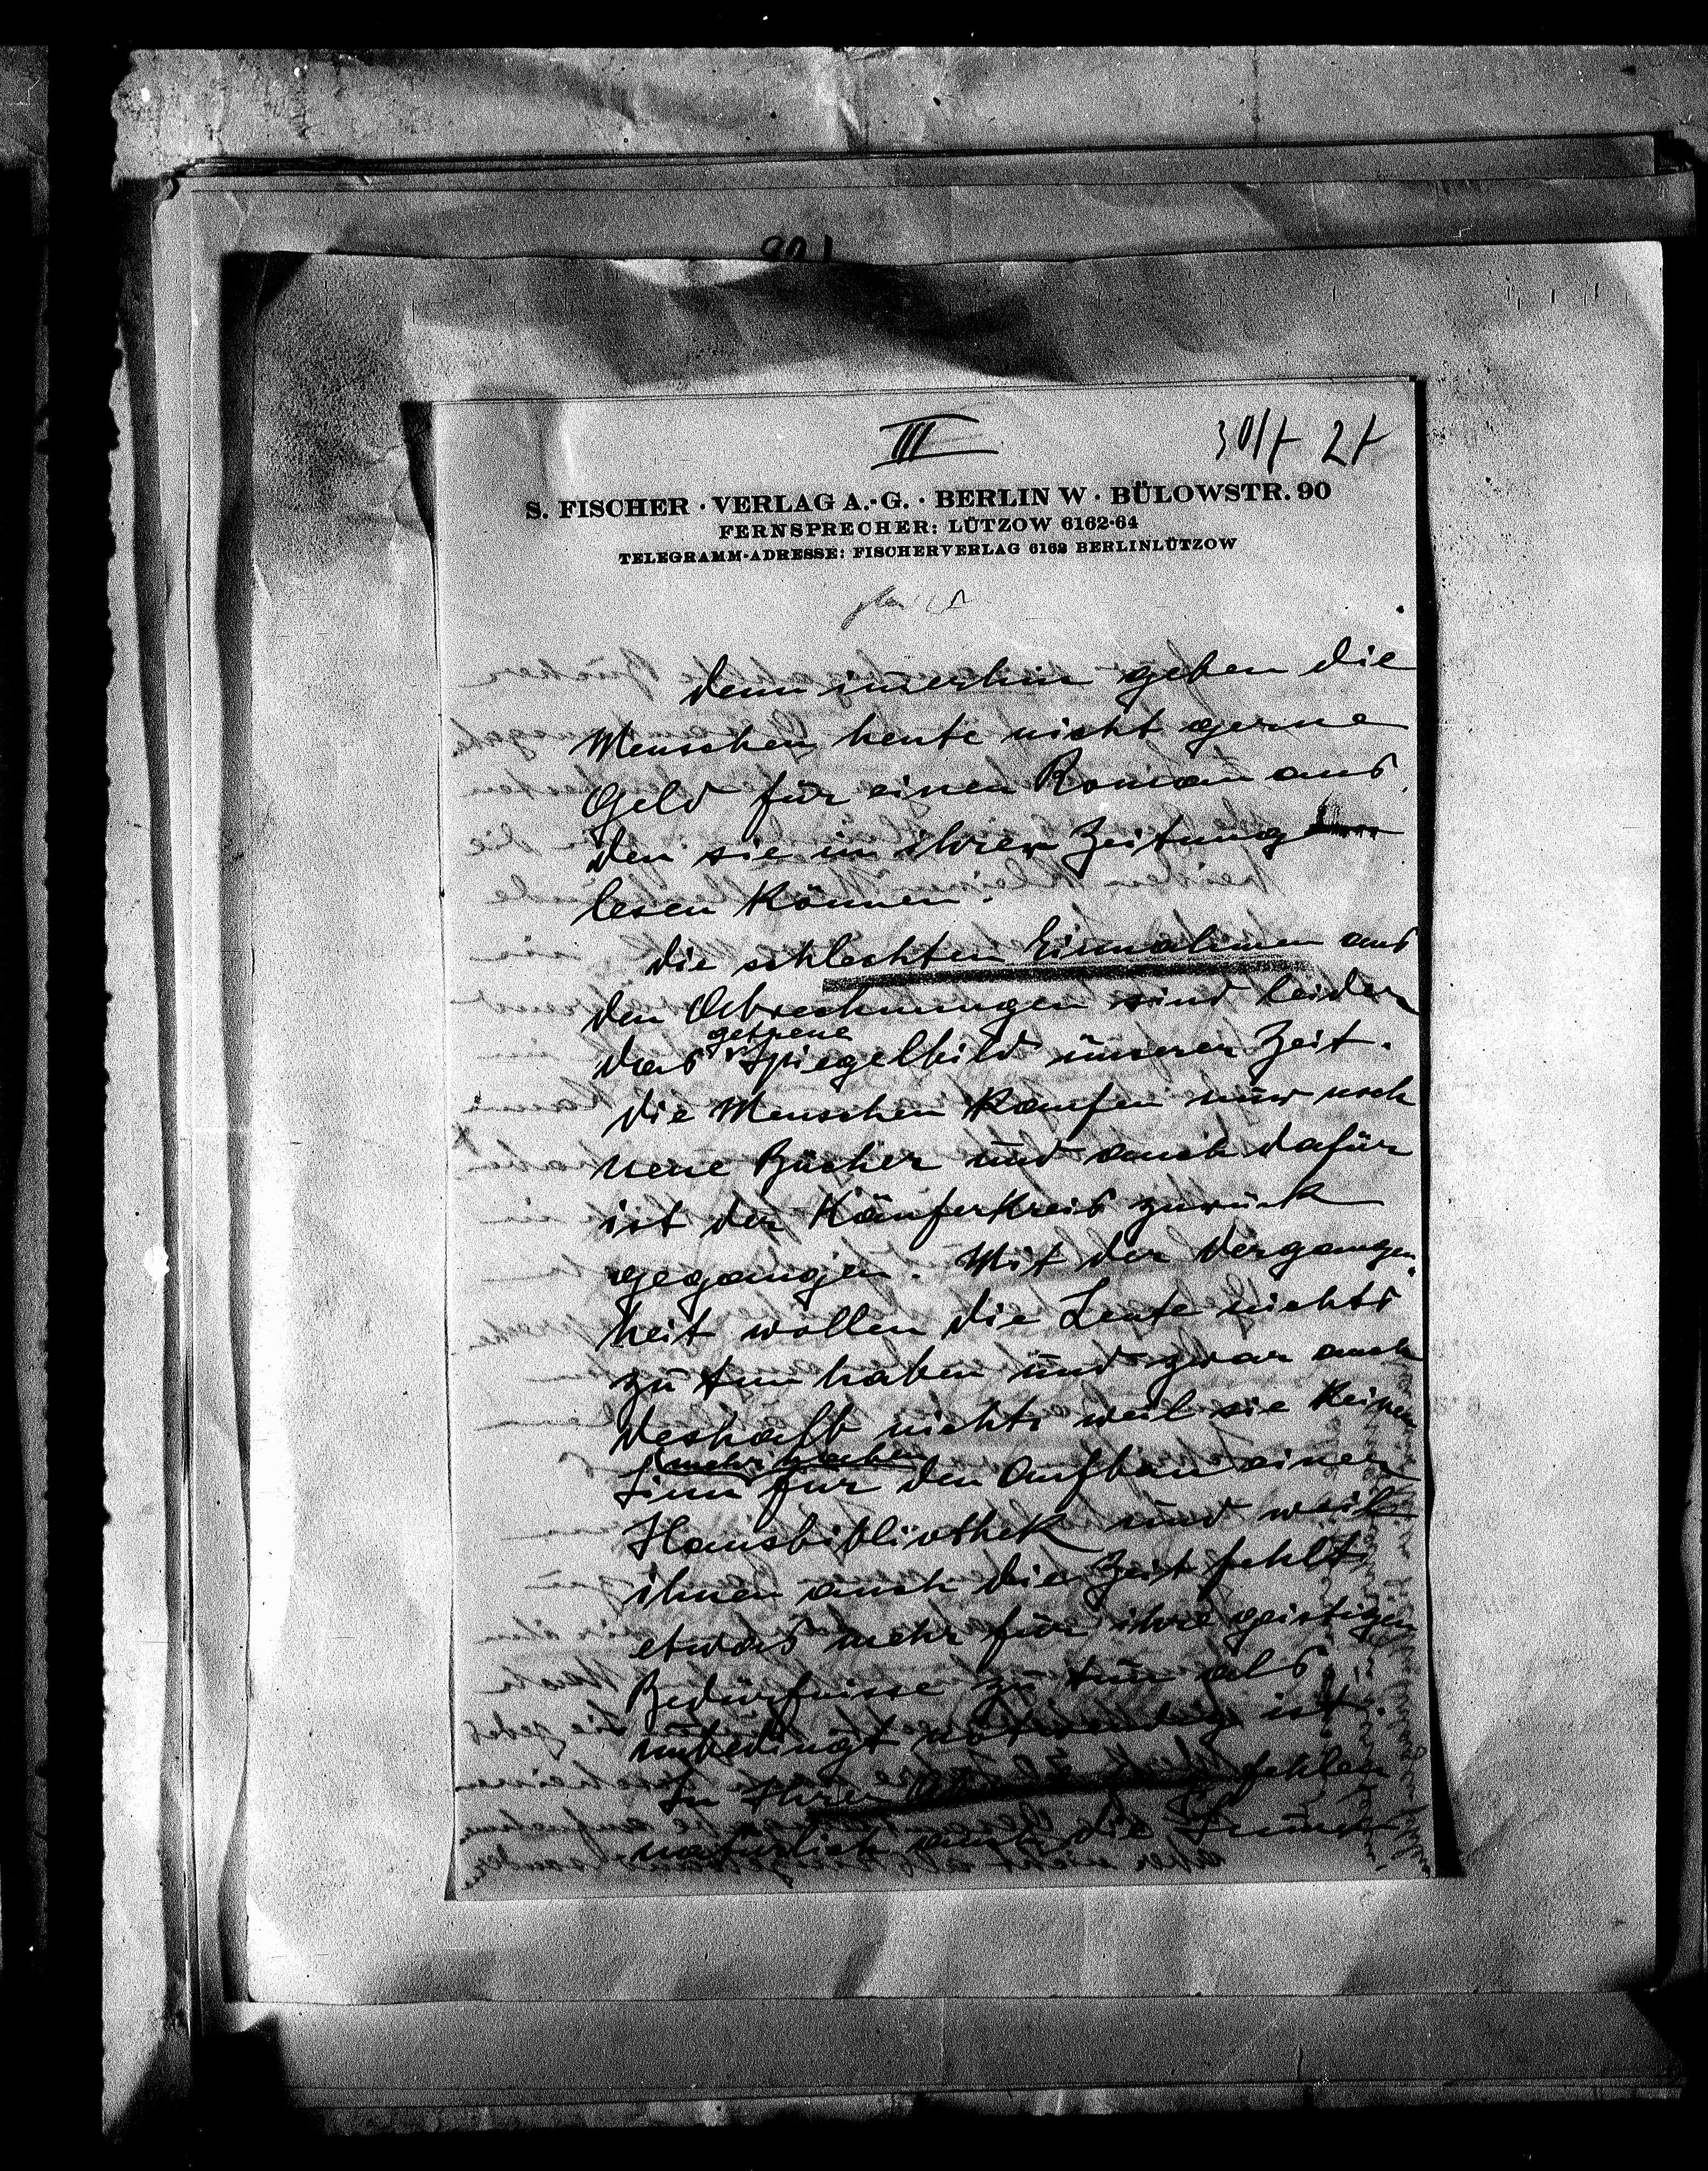 901
III
30/7 27
S. FISCHER · VERLAG A.-G. · BERLIN W · BÜLOWSTR. 90
FERNSPRECHER: LÜTZOW 6162-64
TELEGRAMM-ADRESSE: FISCHERVERLAG 6162 BERLINLÜTZOW
denn imerhin geben die
Menschen heute nicht gerne
Geld für einen Roman aus,
den sie in ihrer Zeitung
lesen können.
die schlechten Einnahmen aus
den Abrechnungen sind leider
getreue
das Spiegelbild unserer Zeit.
die Menschen kaufen nur noch
neue Bücher und auch dafür
ist der Käuferkreis zurück
gegangen. Mit der Vergangen
heit wollen die Leute nichts
zu tun haben und zwar auch
deshalb nichts weil sie keinen
mehr haben
Sinn für den Aufbau einer
Hausbibliothek und weil
ihnen auch die Zeit fehlt
etwas mehr für ihre geistigen
Bedürfnisse zu tun als
unbedingt notwendig ist.
In Ihrer fehlen
natürlich auch die